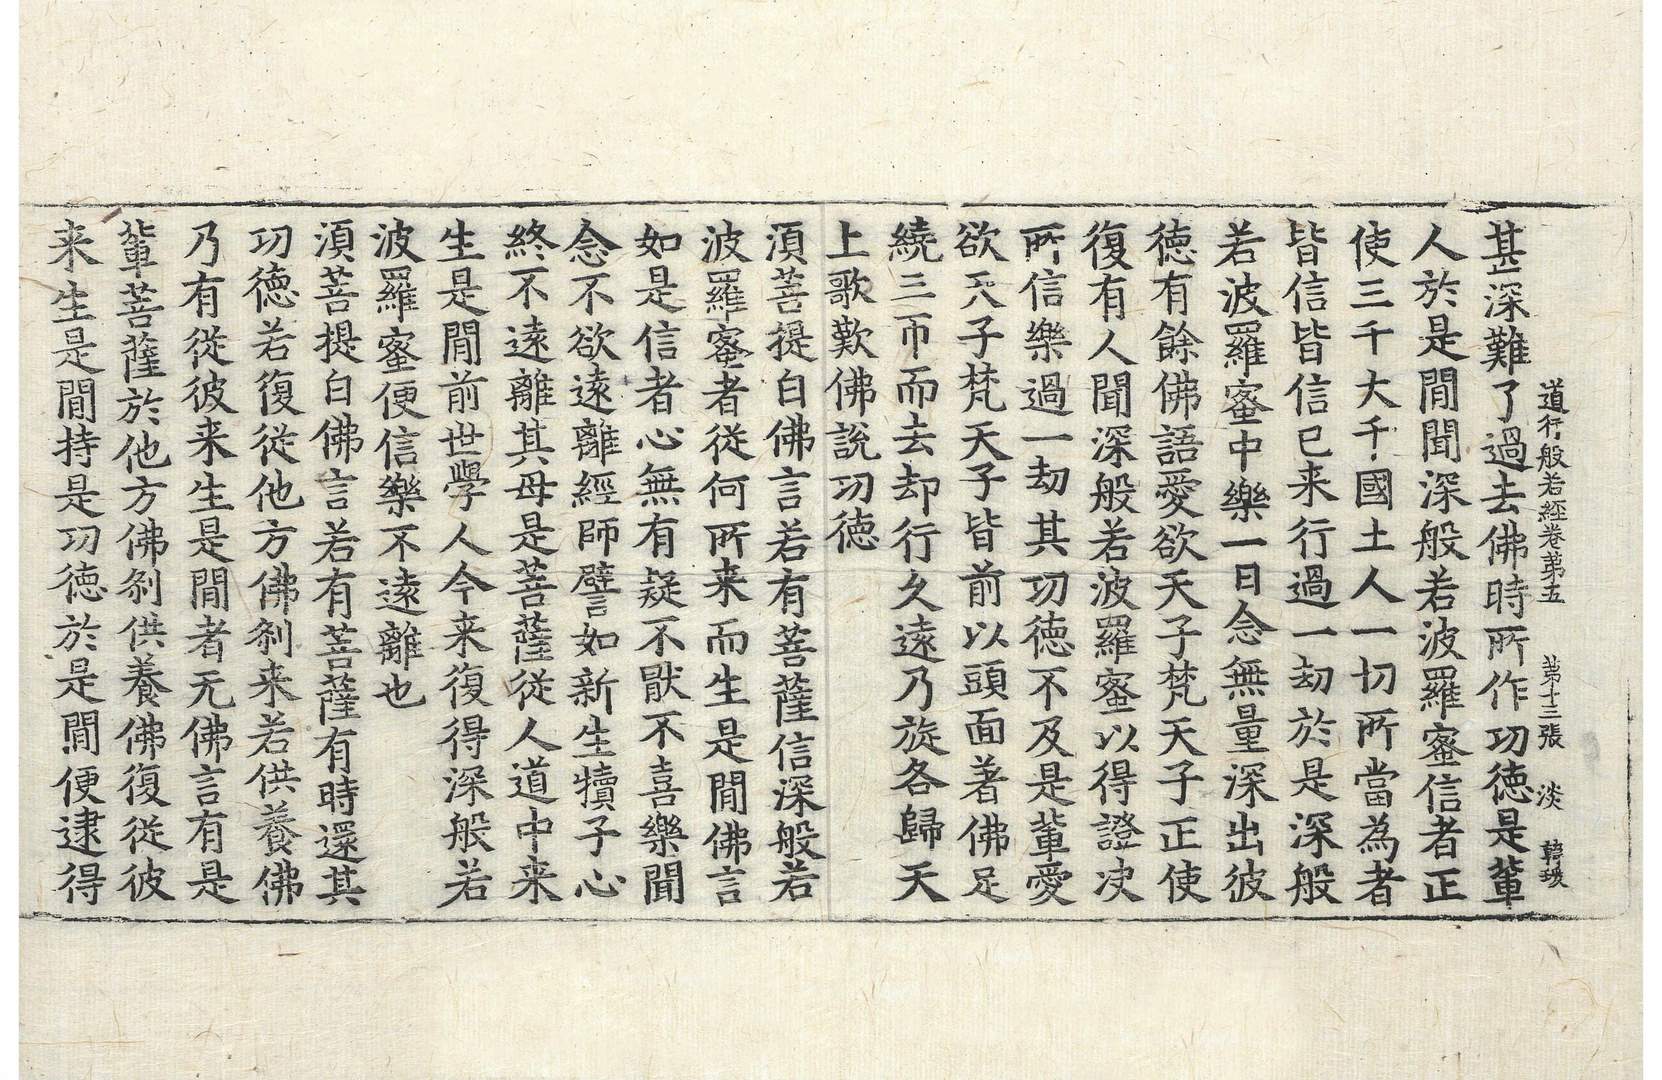 道行般若經卷第五 第十三張 淡 韓瑗
甚深難了過去佛時所作功德是輩
人於是閒聞深般若波羅蜜信者正
使三千大千國土人一切所當為者
皆信皆信已来行過一劫於是深般
若波羅蜜中樂一日念無量深出彼
德有餘佛語愛欲天子梵天子正使
復有人聞深般若波羅蜜以得證决
所信樂過一劫其功德不及是輩愛
欲天子梵天子皆前以頭面著佛足
繞三帀而去却行久遠乃旋各歸天
上歌歎佛說功德
湏菩提白佛言若有菩薩信深般若
波羅蜜者從何所来而生是閒佛言
如是信者心無有疑不厭不喜樂聞
念不欲遠離經師譬如新生犢子心
終不遠離其母是菩薩從人道中来
生是閒前世學人今来復得深般若
波羅蜜便信樂不遠離也
湏菩提白佛言若有菩薩有時還其
功德若復從他方佛刹来若供養佛
乃有從彼来生是閒者无佛言有是
輩菩薩於他方佛刹供養佛復從彼
来生是閒持是功德於是閒便逮得